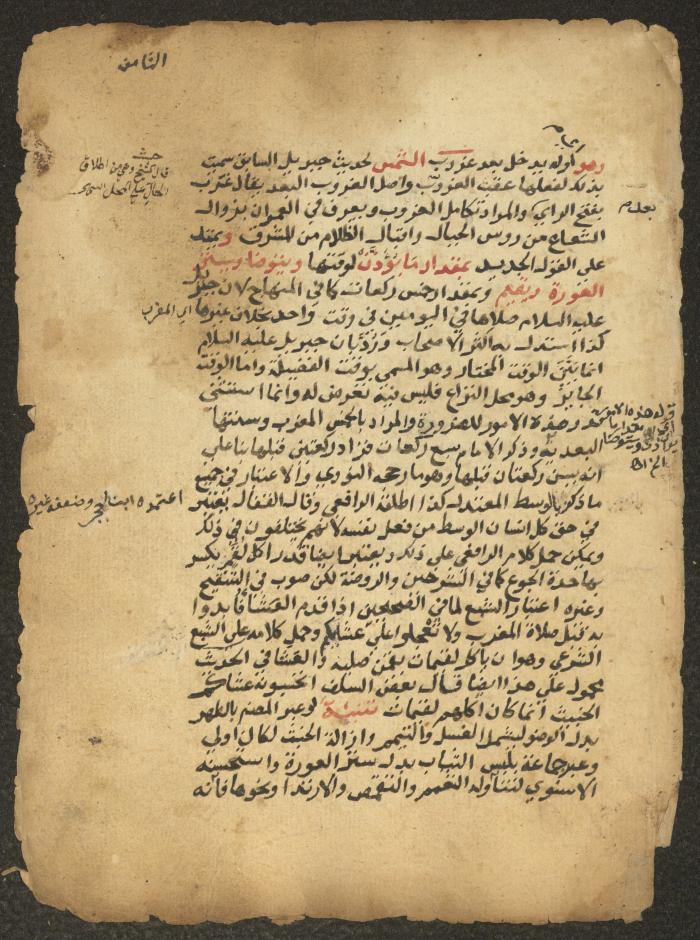 الثامن
وهو أوله يدخل بعد غروب الشمس لحديث جبريل السابق سميت
بذلك لفعلها عقب الغروب واصل الغروب البعد يقال غرب
بفتح الراي والمراد تكامل الغروب ويعرف في العمران بزوال
الشعاع من روس الجبال واقبال الظلام من المشرق ويمتد
على القول الجديد بمقدار ما يؤذن لوقتها ويتوضا ويستر
العورة ويقيم وبمقدار خمس ركعات كما في المنهاج لان جبريل
عليه السلام صلاها في اليومين في وقت واحد بخلاف غيرها
كذا استدل به اكثر الاصحاب ورد بان جبريل عليه السلام
انما بين الوقت المختار وهو المسمى بوقت الفضيلة واما الوقت
الجايز وهو محل النزاع فليس فيه تعرض له وانما استثنى
قدر هذه الامور للضرورة والمراد بالخمس المغرب وسنتها
البعدية وذكر الامام سبع ركعات فزاد ركعتين قبلها بنا على
انه يسن ركعتان قبلها وهو ما رجحه النووي والاعتبار في جميع
ما ذكر بالوسط المعتدل كذا اطلقه الرافعي وقال القفال يعتبر
في حق كل انسان الوسط من فعل نفسه لانهم يختلفون في ذلك
ويمكن حمل كلام الرافعي على ذلك ويعتبر ايضا قدر اكل لقم يكسر
بها حدة الجوع كما في الشرحين والروضة لكن صوب في التنقيح
وغيره اعتبار الشبع لما في الصحيحين اذا قدم العشا فابدوا
به قبل صلاة المغرب ولا تعجلوا عن عشايكم وحمل كلامه على الشبع
الشرعي وهو ان ياكل لقيمات يقمن صلبه والعشا في الحديث
محمول على هذا ايضا قال بعض السلف اتحسبونه عشاكم
الخبيث انما كان اكلهم لقيمات تنبيه لو عبر المصنف بالطهر
بدل الوضو ليشمل الغسل والتيمم وازالة الخبث لكان اولى
وعبر جماعة بلبس الثياب بدل ستر العورة واستحسنه
الاسنوي لتناوله التعمم والتقمص والارتدا ونحوها فانه
اي المغرب
اعتمده ابن حجر وضعفه غيره